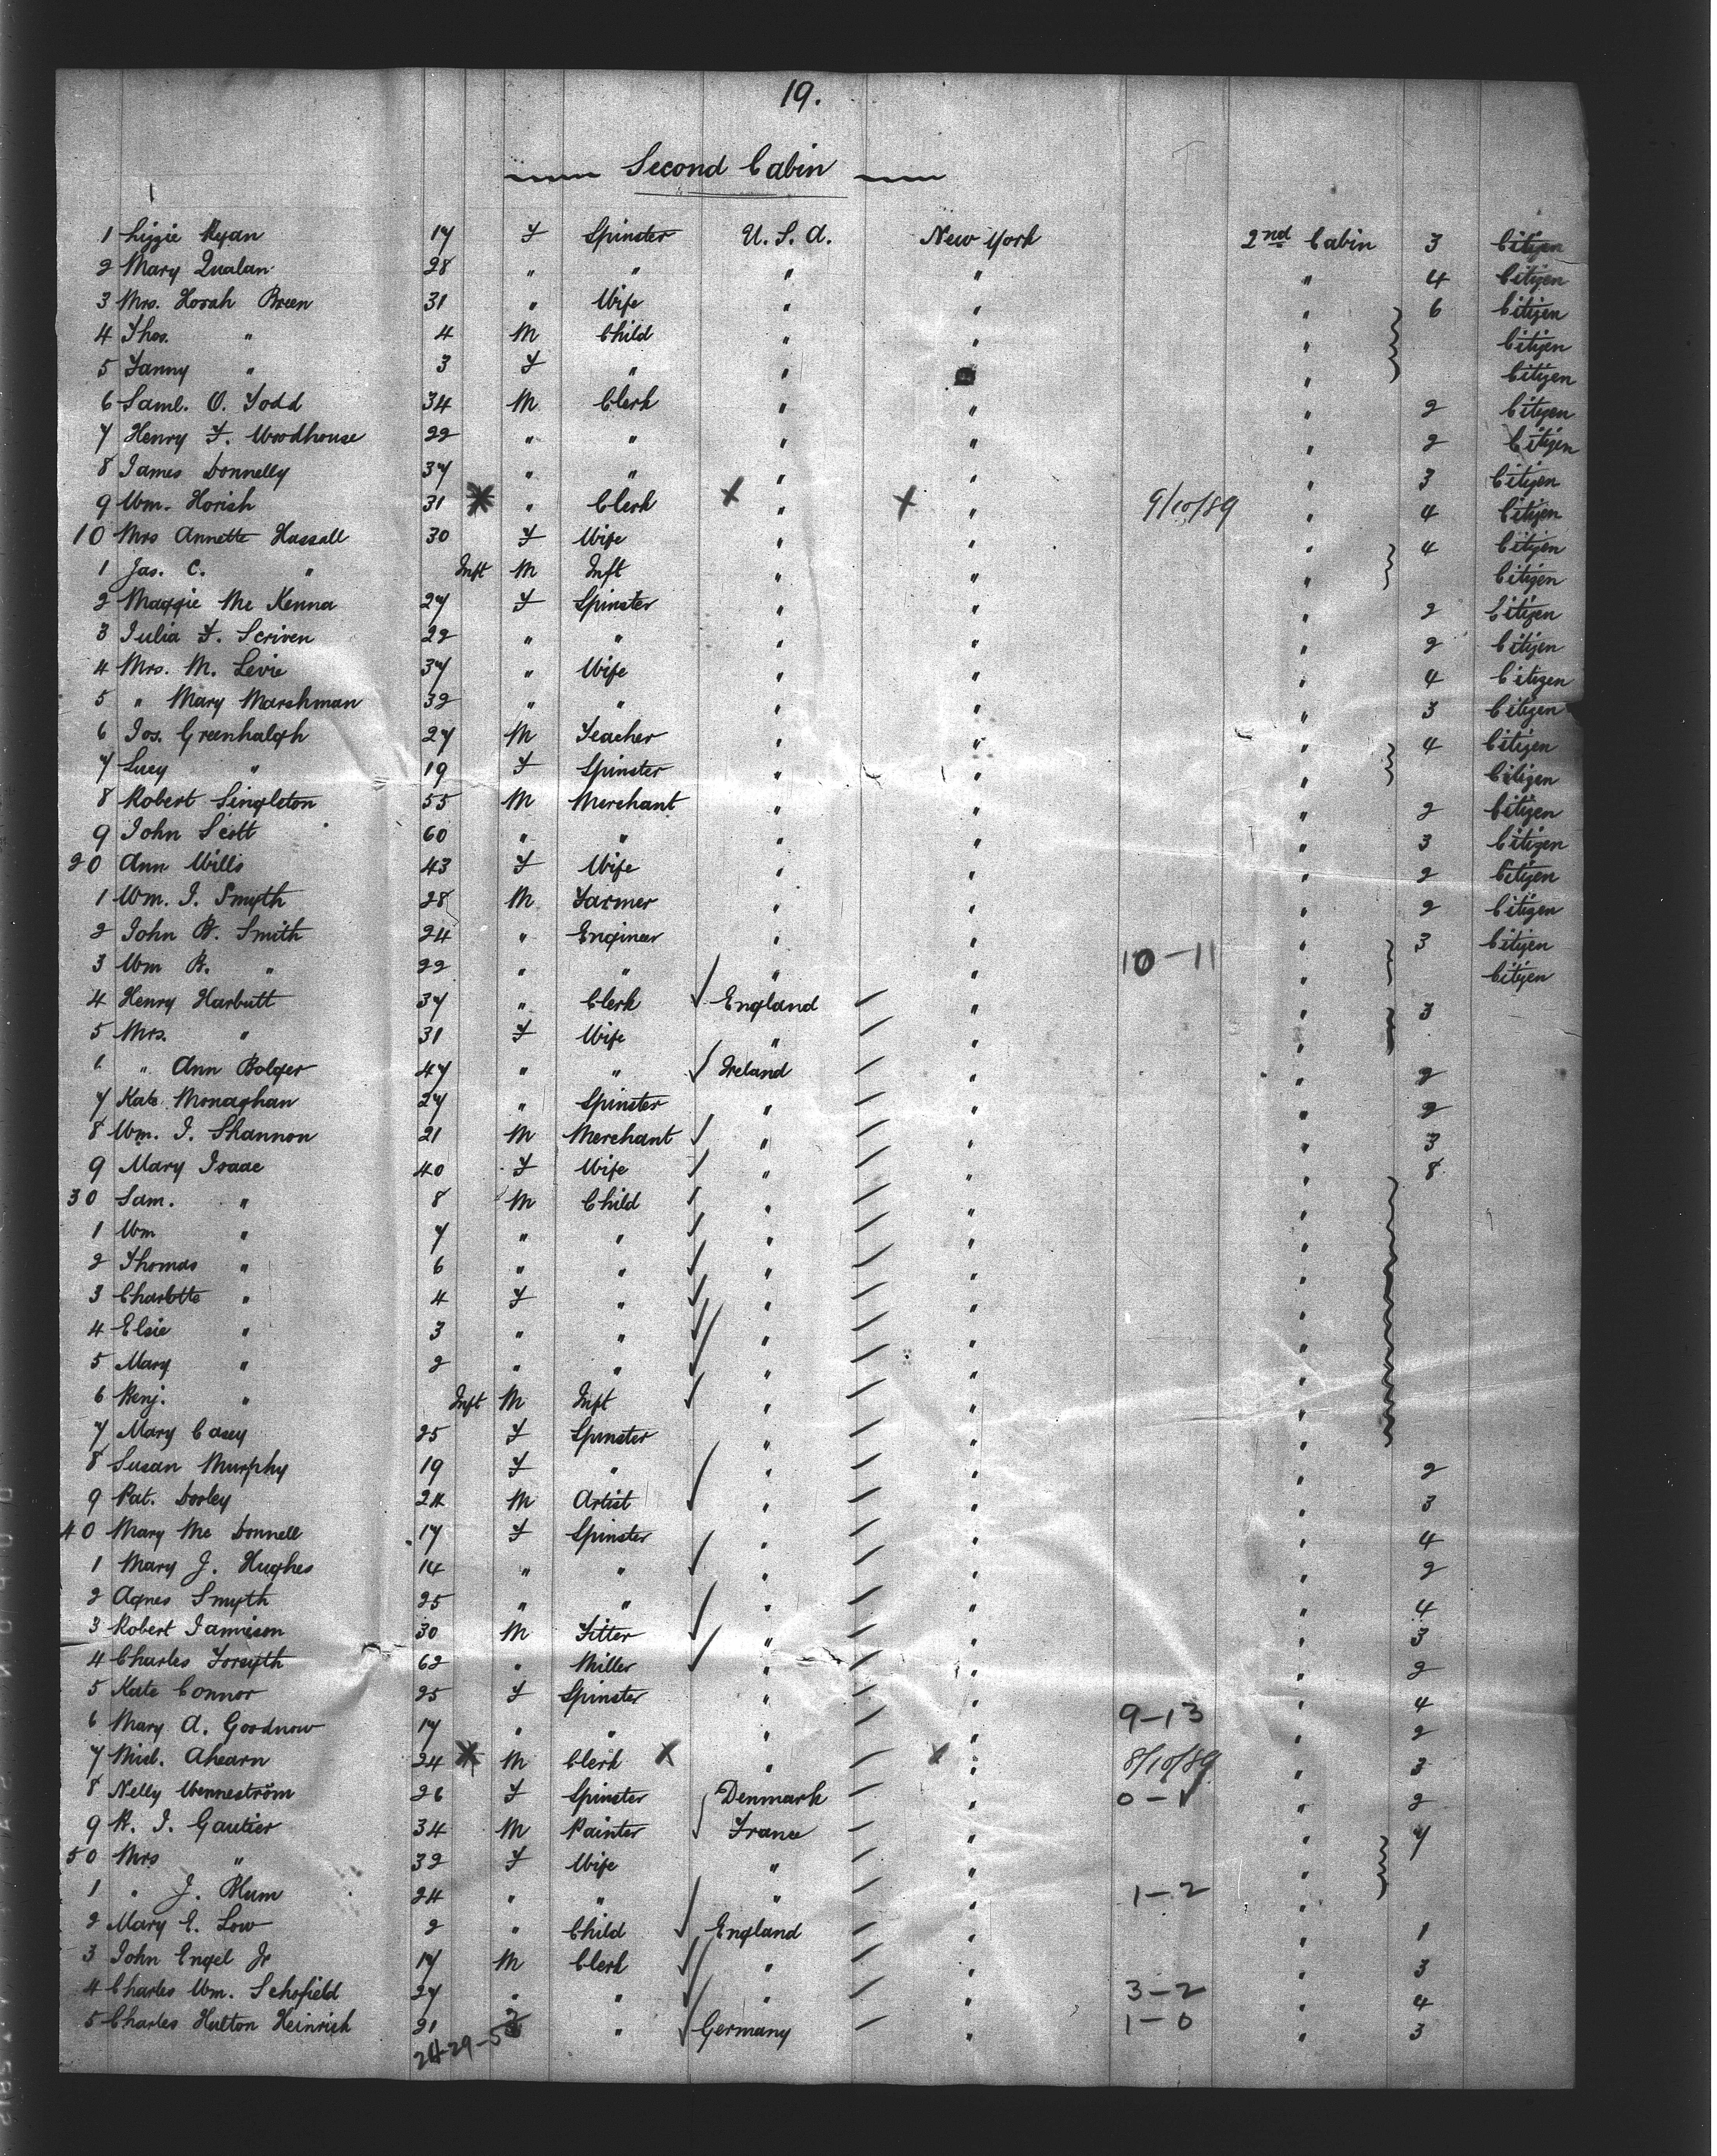 19.
Second Cabin
1 Lizzie Ryan 17 F Spinster U.S.A. New York 2nd Cabin 3 Citizen
2 Mary Qualan 28 " " " " " 4 Citizen
3 Mrs. Horah Breen 31 " Wife " " " 6 Citizen
4 Thos. " 4 M Child " " Citizen
5 Fanny " 3 F " " " Citizen
6 Saml. O. Todd 34 M Clerk " " " 2 Citizen
7 Henry F. Woodhouse 22 " " " " " 2 Citizen
8 James Donnelly 37 " " " " " 3 Citizen
9 Wm. Horish 31 " Clerk X " X " 9/10/89 " 4 Citizen
10 Mrs Annette Hassall 30 F Wife " " " 4 Citizen
1 Jas. C. " Inft M Inft " " " Citizen
2 Maggie McKenna 27 F Spinster " " " 2 Citizen
3 Julia F. Scriven 22 " " " " " 2 Citizen
4 Mrs. M. Levie 37 " Wife " " " 4 Citizen
5 " Mary Marshman 32 " " " " " 3 Citizen
6 Jos. Greenhalgh 27 M Teacher " " " 4 Citizen
7 Lucy " 19 F Spinster " " " Citizen
8 Robert Singleton 55 M Merchant " " " 2 Citizen
9 John Scott 60 " " " " " 3 Citizen
20 Ann Wills 43 F Wife " " " 2 Citizen
1 Wm. J. Smyth 28 M Farmer " " " 2 Citizen
2 John B. Smith 24 " Engineer " " " 3 Citizen
3 Wm R. " 22 " " " " 10-11 " Citizen
4 Henry Harbutt 37 " Clerk England " " 3
5 Mrs. " 31 F Wife " " "
" Ann Bolger 47 " " Ireland " " 2
7 Kate Monaghan 27 " Spinster " " " 2
8 Wm. J. Shannon 21 M Merchant " " " 3
9 Mary Isaac 40 F Wife " " " 8
30 Sam. " 8 M Child " " "
1 Wm " 7 " " " " "
2 Thomas " 6 " " " " "
3 Charlotte " 4 F " " " "
4 Elsie " 3 " " " " "
5 Mary " 2 " " " " "
6 Benj. " Inft M Inft " " "
7 Mary Casey 25 F Spinster " " "
8 Susan Murphy 19 F " " " " 2
9 Pat. Dooley 24 M Artist " " " 3
40 Mary McDonnell 17 F Spinster " " " 4
1 Mary J. Hughes 14 " " " " " 2
2 Agnes Smyth 25 " " " " " 4
3 Robert Jamieson 30 M Fitter " " " 3
4 Charles Forsyth 62 " Miller " " " 2
5 Kate Connor 25 F Spinster " " " 4
6 Mary A. Goodnow 17 " " " " 9-13 " 2
7 Mich. Ahearn 24 M Clerk X " X " 8/10/89 " 3
8 Nelly Wenneström 26 F Spinster Denmark " 0-1 " 2
9 R. J. Gautier 34 M Painter France " " 7
50 Mrs " 32 F Wife " " "
1 " J. Blum 24 " " " " 1-2 "
2 Mary E. Low 2 " Child England " " 1
3 John Engel Jr 17 M Clerk " " " 3
4 Charles Wm. Schofield 27 " " " " 3-2 " 4
5 Charles Hulton Heinrich 21 " Germany " 1-0 " 3